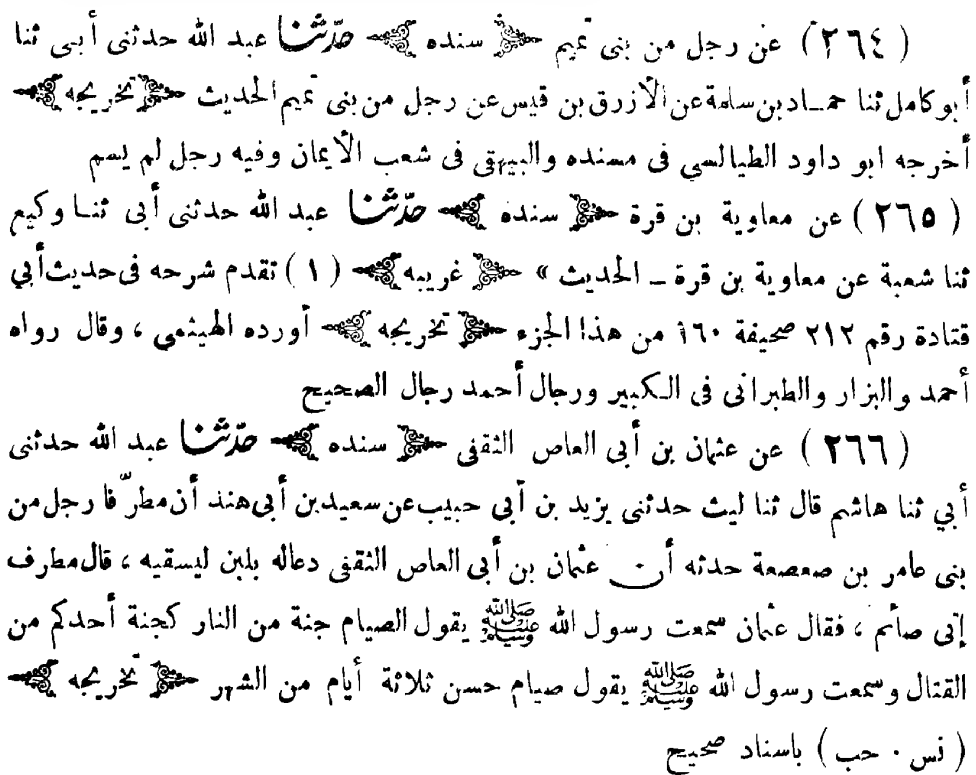 (٢٦٤) عن رجل من بنى تميم ﴿ سنده ﴾ حدّثنا عبد الله حدثنى أبى ثنا
أبو كامل ثنا حماد بن سلمة عن الأزرق بن قيس عن رجل من بنى تميم الحديث ﴿ تخريجه ﴾
أخرجه ابو داود الطيالسي فى مسنده والبيهقى فى شعب الأيمان وفيه رجل لم يسم
(٢٦٥) عن معاوية بن قرة ﴿ سنده ﴾ حدّثنا عبد الله حدثنى أبى ثنا وكيع
ثنا شعبة عن معاوية بن قرة ــ الحديث » ﴿ غريبه ﴾ (١) تقدم شرحه فى حديث أبي
قتادة رقم ٢١٢ صحيفة ١٦٠ من هذا الجزء ﴿ تخريجه ﴾ أورده الهيثمي ، وقال رواه
أحمد والبزار والطبرانى فى الكبير ورجال أحمد رجال الصحيح
(٢٦٦) عن عثمان بن أبى العاص الثقفى ﴿ سنده ﴾ حدّثنا عبد الله حدثنى
أبي ثنا هاشم قال ثنا ليث حدثنى يزيد بن أبي حبيب عن سعيد بن أبى هند أن مطرّفا رجل من
بنى عامر بن صعصعة حدثه أن عثمان بن أبى العاص الثقفى دعاله بلبن ليسقيه ، قال مطرف
إنى صائم ، فقال عثمان سمعت رسول الله ﷺ يقول الصيام جنة من النار كجنة أحدكم من
القتال وسمعت رسول الله ﷺ يقول صيام حسن ثلاثة أيام من الشهر ﴿ تخريجه ﴾
( نس . حب ) باسناد صحيح